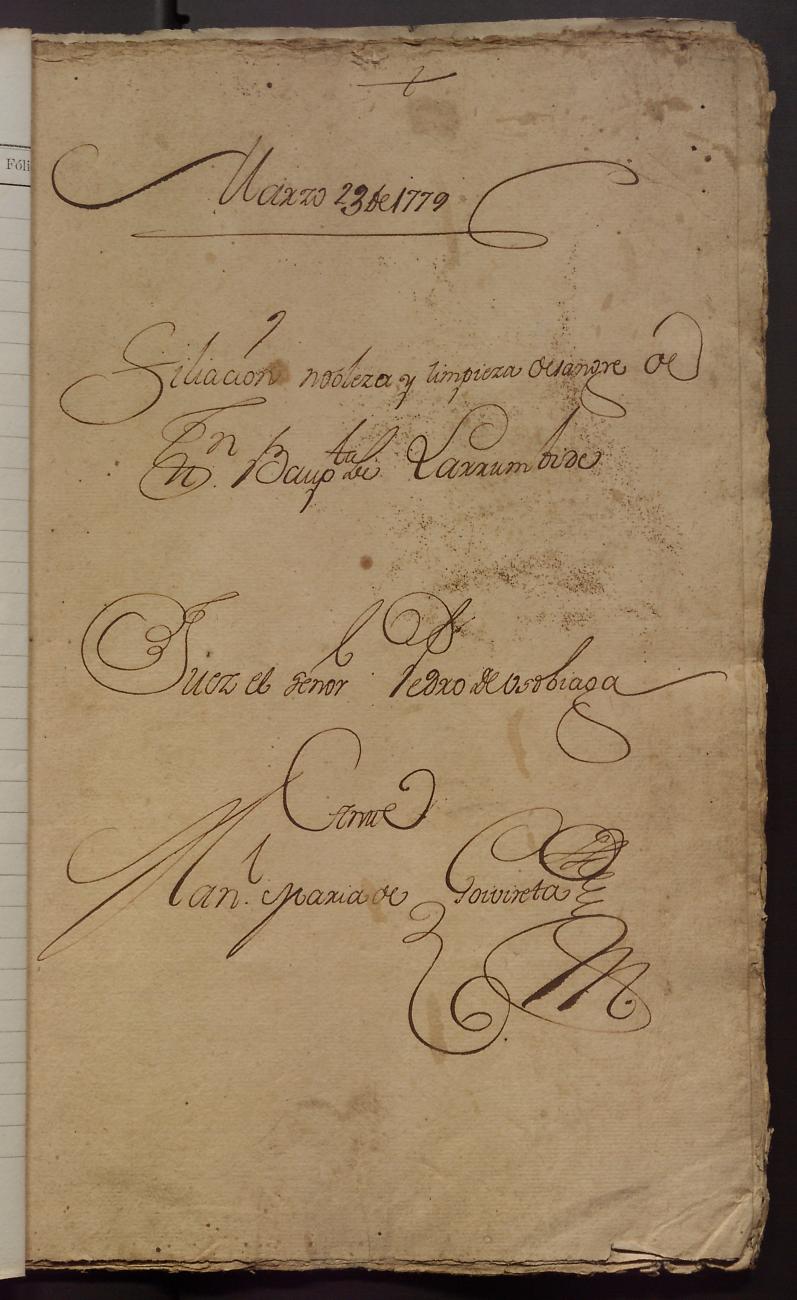 Fóli
Marzo 23 de 1779
Filiacion nobleza y limpieza de sangre de
Jn. Bapta de Larrumbide
Juez el señor Dn Pedro de Vsobiaga
Anue
Manl. Maria de Soivireta